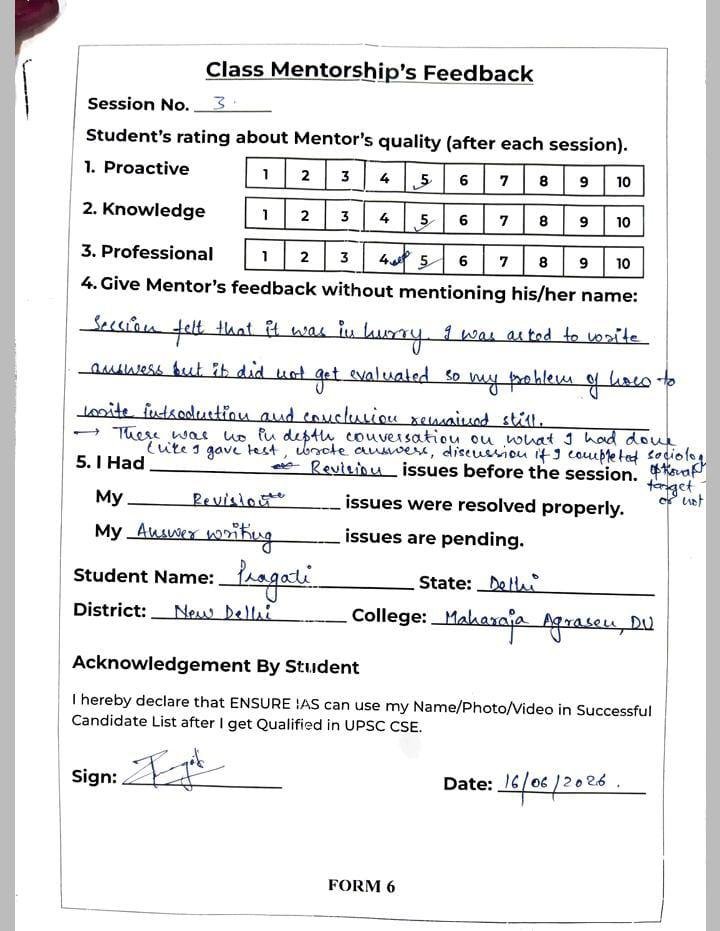 Class Mentorship's Feedback
Session No. 3.
Student's rating about Mentor's quality (after each session).
1. Proactive 1 2 3 4 5 6 7 8 9 10
2. Knowledge 1 2 3 4 5 6 7 8 9 10
3. Professional 1 2 3 4 5 6 7 8 9 10
4. Give Mentor's feedback without mentioning his/her name:
Session felt that it was in hurry. I was asked to write
answers but it did not get evaluated so my problem of how to
write introduction and conclusion remained still.
→ There was no in depth conversation on what I had done
(like I gave test, wrote answers, discussion if I completed sociology
optional
target
or not
5. I Had Revision issues before the session.
My Revision issues were resolved properly.
My Answer writing issues are pending.
Student Name: Pragati State: Delhi
District: New Delhi College: Maharaja Agrasen, DU
Acknowledgement By Student
I hereby declare that ENSURE IAS can use my Name/Photo/Video in Successful
Candidate List after I get Qualified in UPSC CSE.
Sign: Date: 16/06/2026.
FORM 6